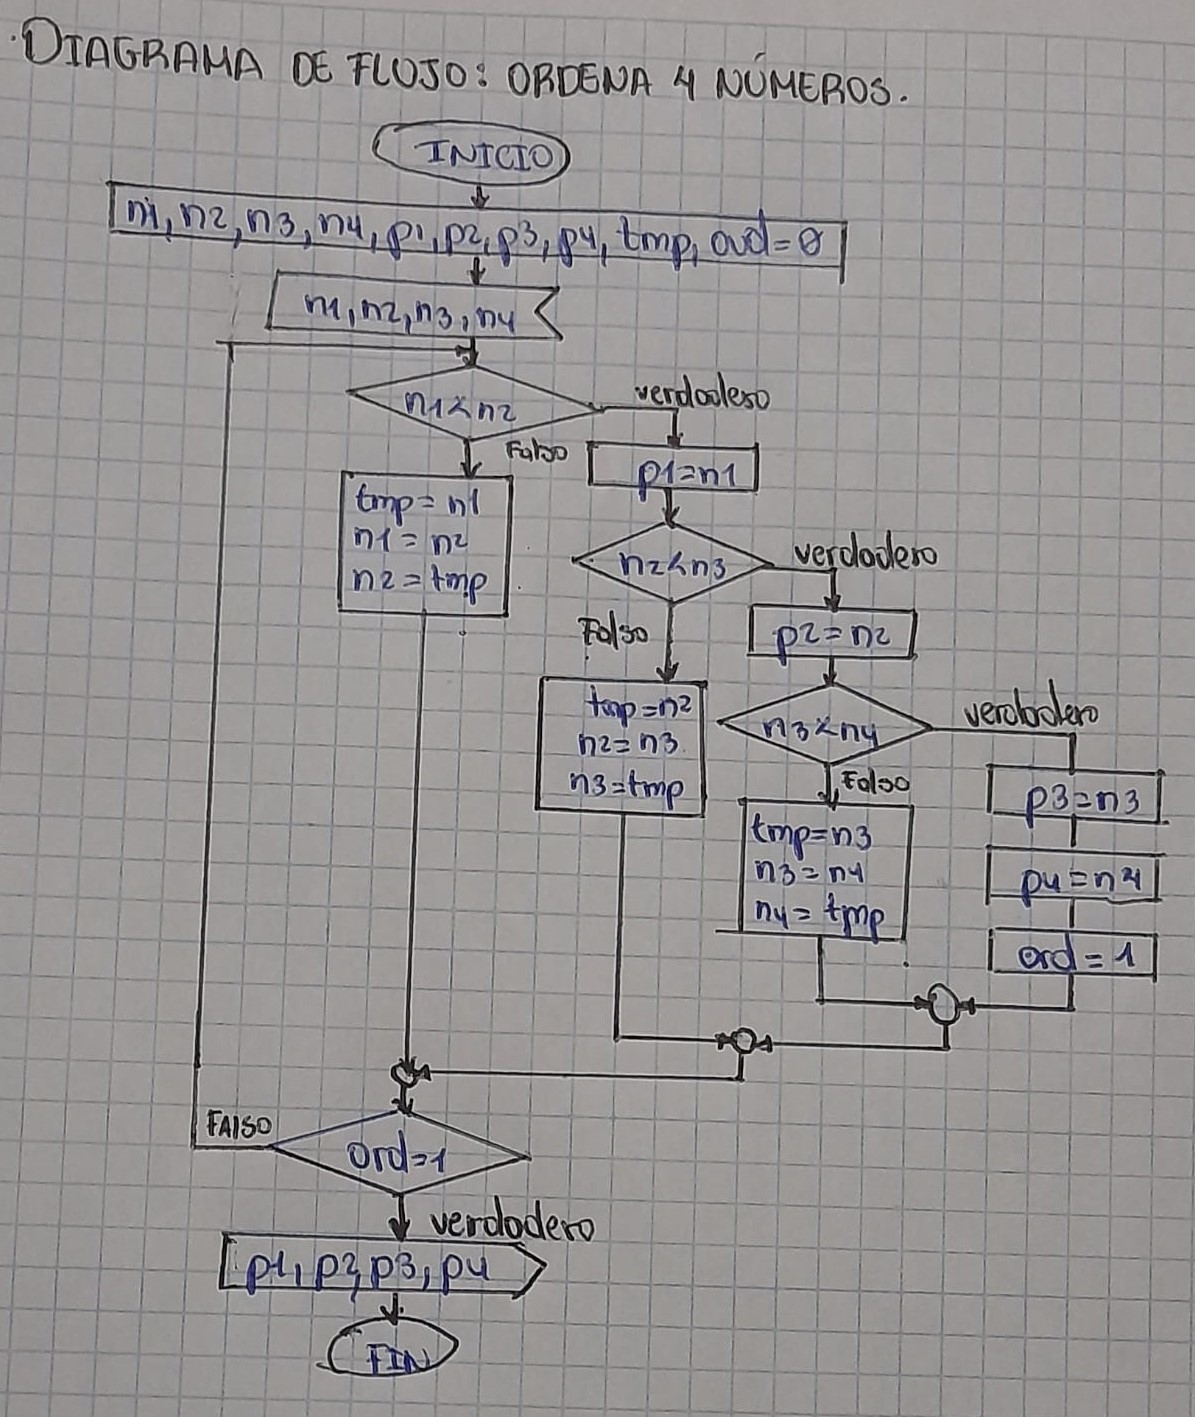 DIAGRAMA DE FLUJO: ORDENA 4 NÚMEROS.
INICIO
n1, n2, n3, n4, p1, p2, p3, p4, tmp, ord=0
n1, n2, n3, n4
n1<n2
verdadero
Falso
p1=n1
tmp = n1
n1 = n2
n2 = tmp
n2<n3
verdadero
Falso
p2=n2
tmp=n2
n2=n3
n3=tmp
n3<n4
verdadero
Falso
p3=n3
tmp=n3
n3=n4
n4=tmp
p4=n4
ord=1
FALSO
ord=1
verdadero
p1, p2, p3, p4
FIN